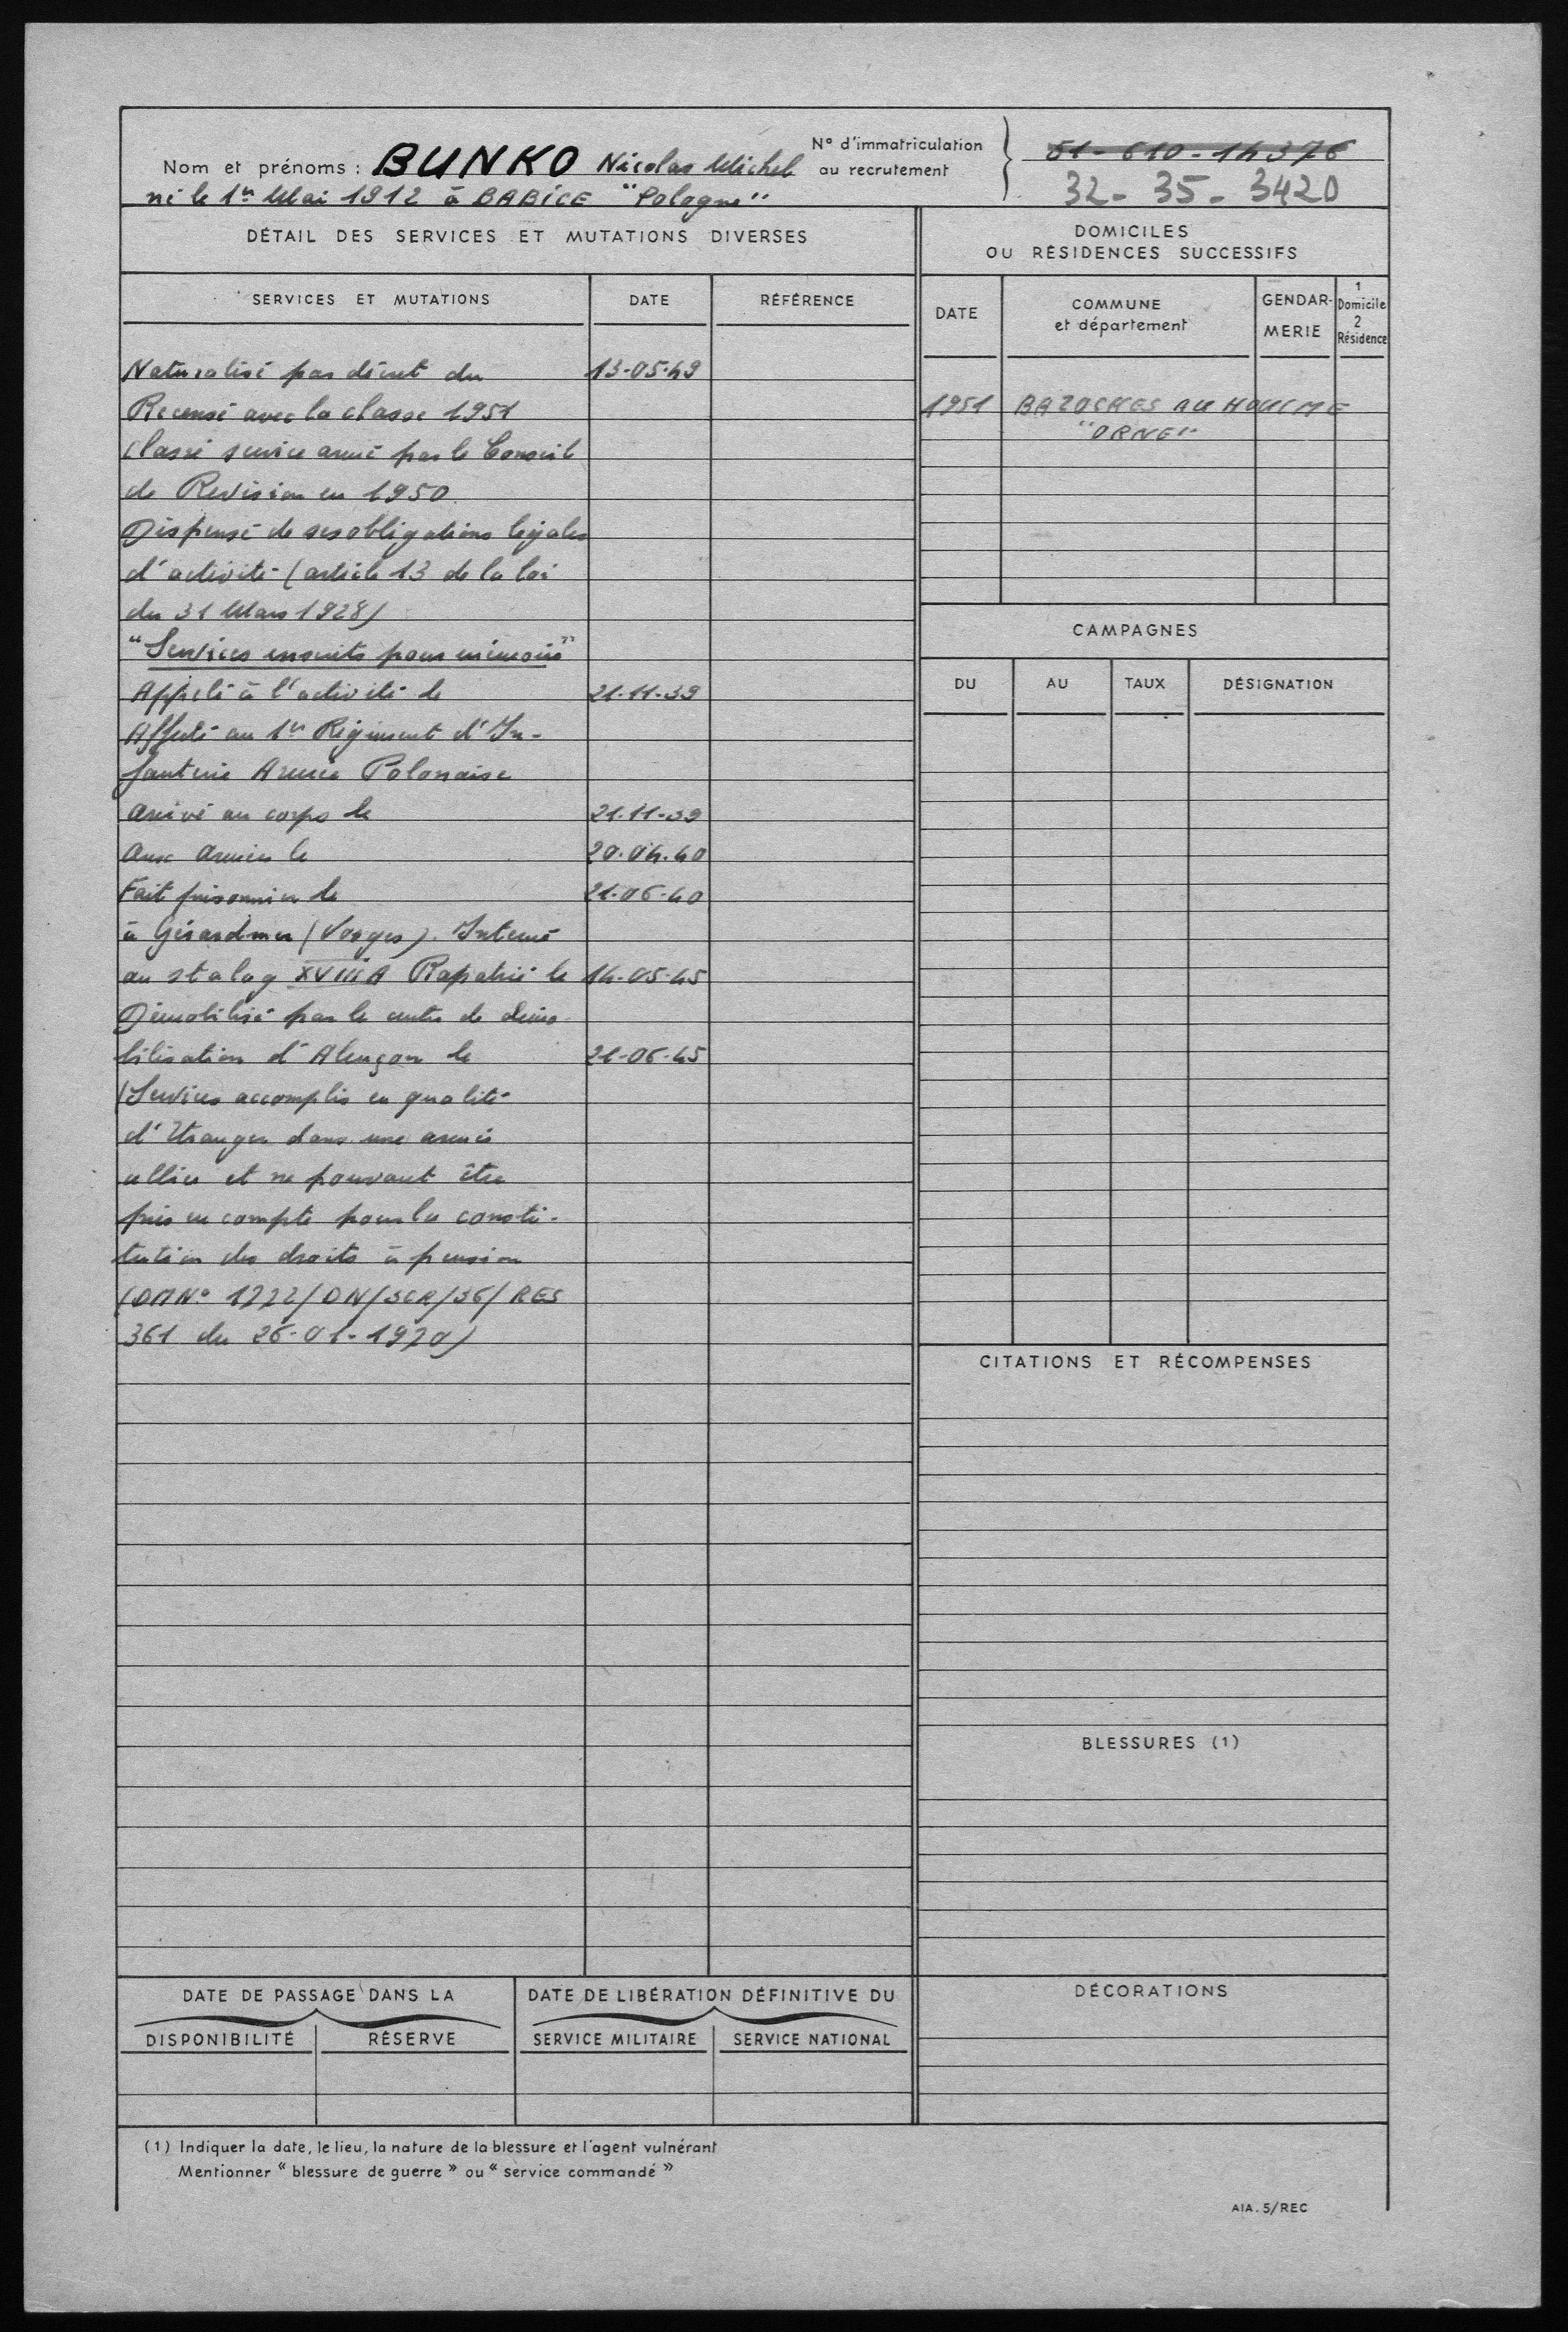 Nom et prénoms : BUNKO Nicolas Michel
né le 1er Mai 1912 à BABICE "Pologne"
N° d'immatriculation
au recrutement
51-610-14376
32-35-3420
DÉTAIL DES SERVICES ET MUTATIONS DIVERSES
SERVICES ET MUTATIONS DATE RÉFÉRENCE
Naturalisé par décret du 13-05-49
Recensé avec la classe 1951
Classé service armé par le Conseil
de Revision en 1950
Dispensé de ses obligations légales
d'activité (article 13 de la loi
du 31 Mars 1928)
"Services inscrits pour mémoire"
Appelé à l'activité le 21-11-39
Affecté au 1er Régiment d'In-
fanterie Armée Polonaise
Arrivé au corps le 21-11-39
Aux Armées le 20.04.40
Fait prisonnier le 21-06-40
à Gérardmer (Vosges). Interné
au stalag XVIIIA Rapatrié le 14-05-45
Démobilisé par le centre de démo-
bilisation d'Alençon le 21-06-45
(Services accomplis en qualité
d'Etranger dans une armée
alliée et ne pouvant être
pris en compte pour la consti-
tution des droits à pension
(DM N° 1222/DN/SCR/36/RES
361 du 26-01-1970)
DOMICILES
OU RÉSIDENCES SUCCESSIFS
DATE
COMMUNE
et département
GENDAR-
MERIE
1
Domicile
2
Résidence
1951 BAZOCHES AU HOULME
"ORNE"
CAMPAGNES
DU AU TAUX DÉSIGNATION
CITATIONS ET RÉCOMPENSES
BLESSURES (1)
DÉCORATIONS
DATE DE PASSAGE DANS LA
DISPONIBILITÉ RÉSERVE
DATE DE LIBÉRATION DÉFINITIVE DU
SERVICE MILITAIRE SERVICE NATIONAL
(1) Indiquer la date, le lieu, la nature de la blessure et l'agent vulnérant
Mentionner "blessure de guerre" ou "service commandé"
AIA.5/REC